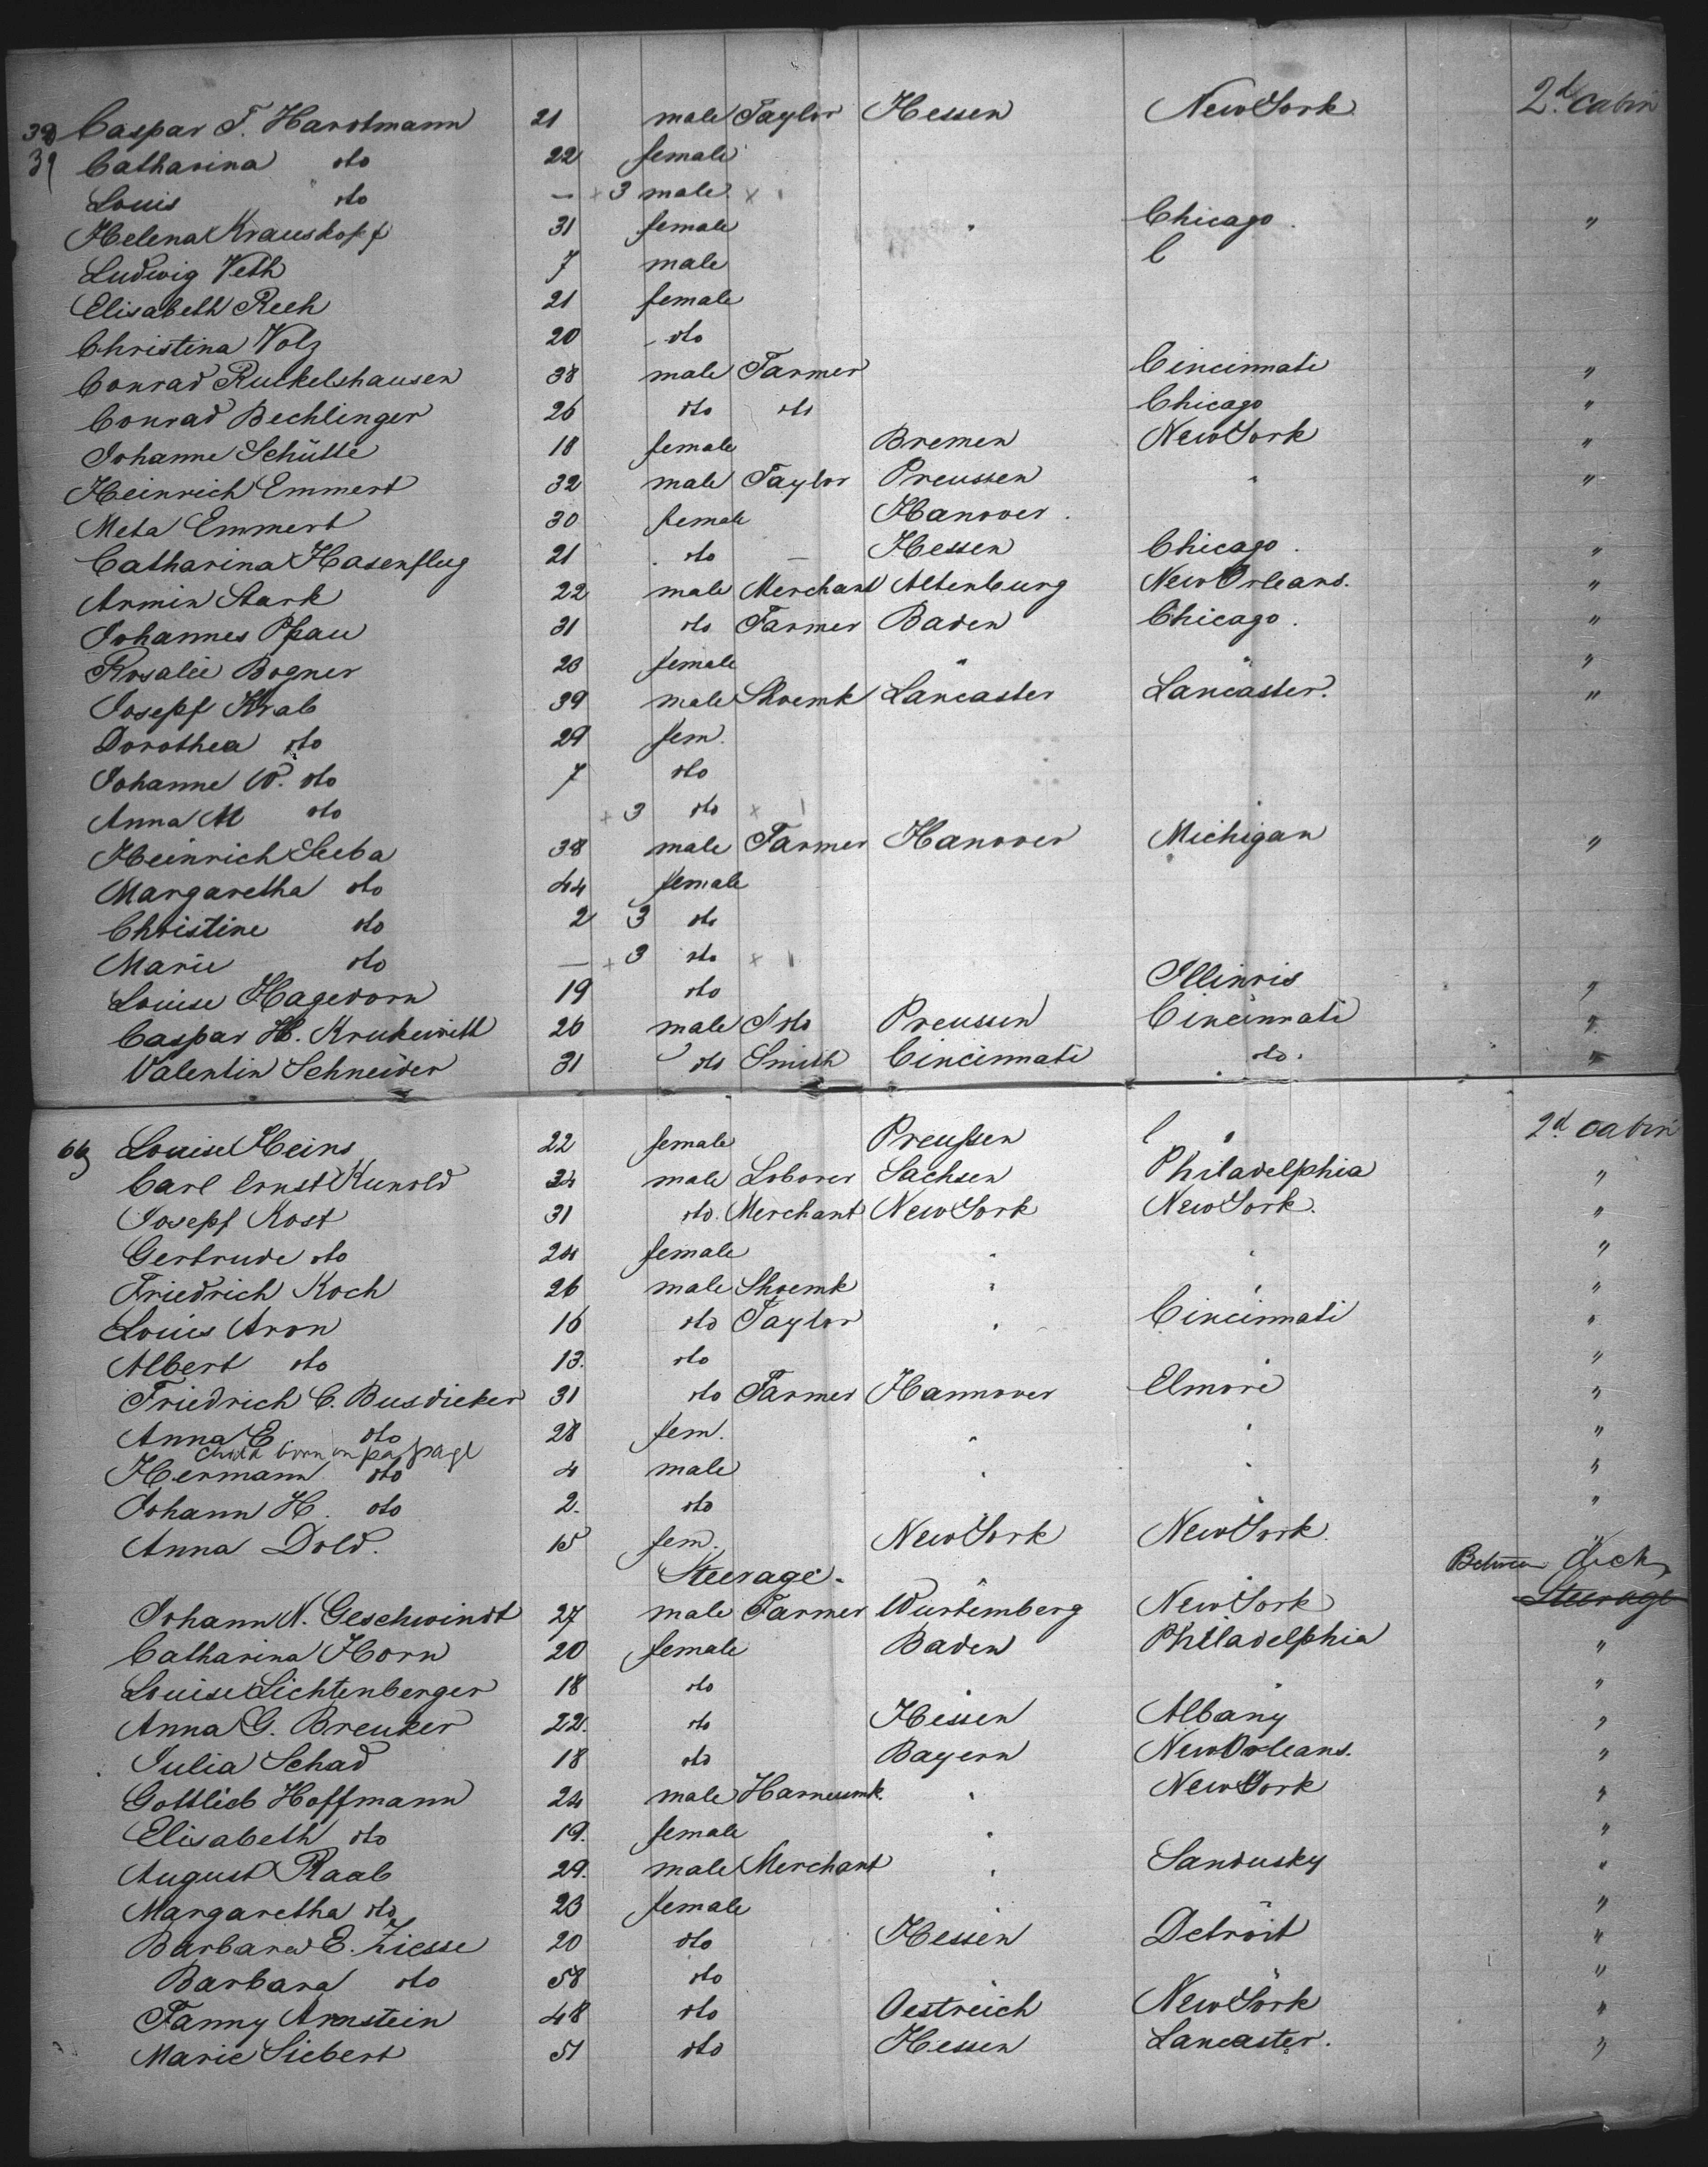 38 Caspar F. Hardtmann 21 male Taylor Hessen New York 2d cabin
39 Catharina dto 22 female
Louis dto — + 3 male x
Helena Krauskopf 31 female " Chicago. "
Ludwig Veth 7 male
Elisabeth Rech 21 female
Christina Volz 20 dto
Conrad Ruckelshausen 38 male Farmer Cincinnati "
Conrad Bechlinger 26 dto dto Chicago "
Johanne Schütte 18 female Bremen New York "
Heinrich Emmert 32 male Taylor Preussen " "
Meta Emmert 30 female Hanover.
Catharina Hasenflug 21 dto — Hessen Chicago. "
Armin Stark 22 male Merchant Altenburg New Orleans. "
Johannes Pfau 31 dto Farmer Baden Chicago. "
Rosalie Bogner 23 female " " "
Josepf Krab 39 male Shoemk Lancaster Lancaster. "
Dorothea dto 29 fem.
Johanne W. dto 7 dto
Anna M dto + 3 dto x
Heinrich Seeba 38 male Farmer Hanover Michigan "
Margaretha dto 44 female
Christine dto 2 3 dto
Marie dto — + 3 dto x
Louise Hagedorn 19 dto Illinois "
Caspar H. Krukewitt 26 male dto Preussen Cincinnati "
Valentin Schneider 31 dto Smith Cincinnati dto. "
66 Louise Heins 22 female Preussen " 2d cabin
Carl Ernst Kunold 34 male Laborer Sachsen Philadelphia "
Josepf Kost 31 dto. Merchant New York New York. "
Gertrude dto 24 female " " "
Friedrich Koch 26 male Shoemk " " "
Louis Aron 16 dto Taylor " Cincinnati "
Albert dto 13. dto "
Friedrich C. Busdieker 31 dto Farmer Hannover Elmore "
Anna E dto 28 fem. " " "
Child born on passage
Hermann dto 4 male " " "
Johann H. dto 2. dto " "
Anna Dold. 15 fem. New York New York. "
Steerage. Between deck
Johann N. Geschwindt 27 male Farmer Würtemberg New York Steerage
Catharina Horn 20 female Baden Philadelphia "
Louise Lichtenberger 18 dto " " "
Anna G. Breuker 22. dto Hessen Albany "
Julia Schad 18 dto Bayern New Orleans. "
Gottlieb Hoffmann 24 male Harnessmk. " New York "
Elisabeth dto 19. female " "
August Raab 29. male Merchant " Sandusky "
Margaretha dto 23 female " "
Barbara E. Ziesse 20 dto Hessen Detroit "
Barbara dto 58 dto "
Fanny Arnstein 48 dto Oestreich New York "
Marie Siebert 51 dto Hessen Lancaster. "